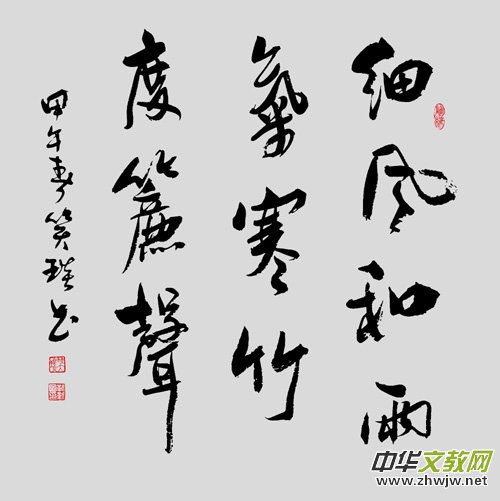 细风和雨
氣寒竹
度簾聲
甲午春笑书
中华文教网
www.zhwjw.net